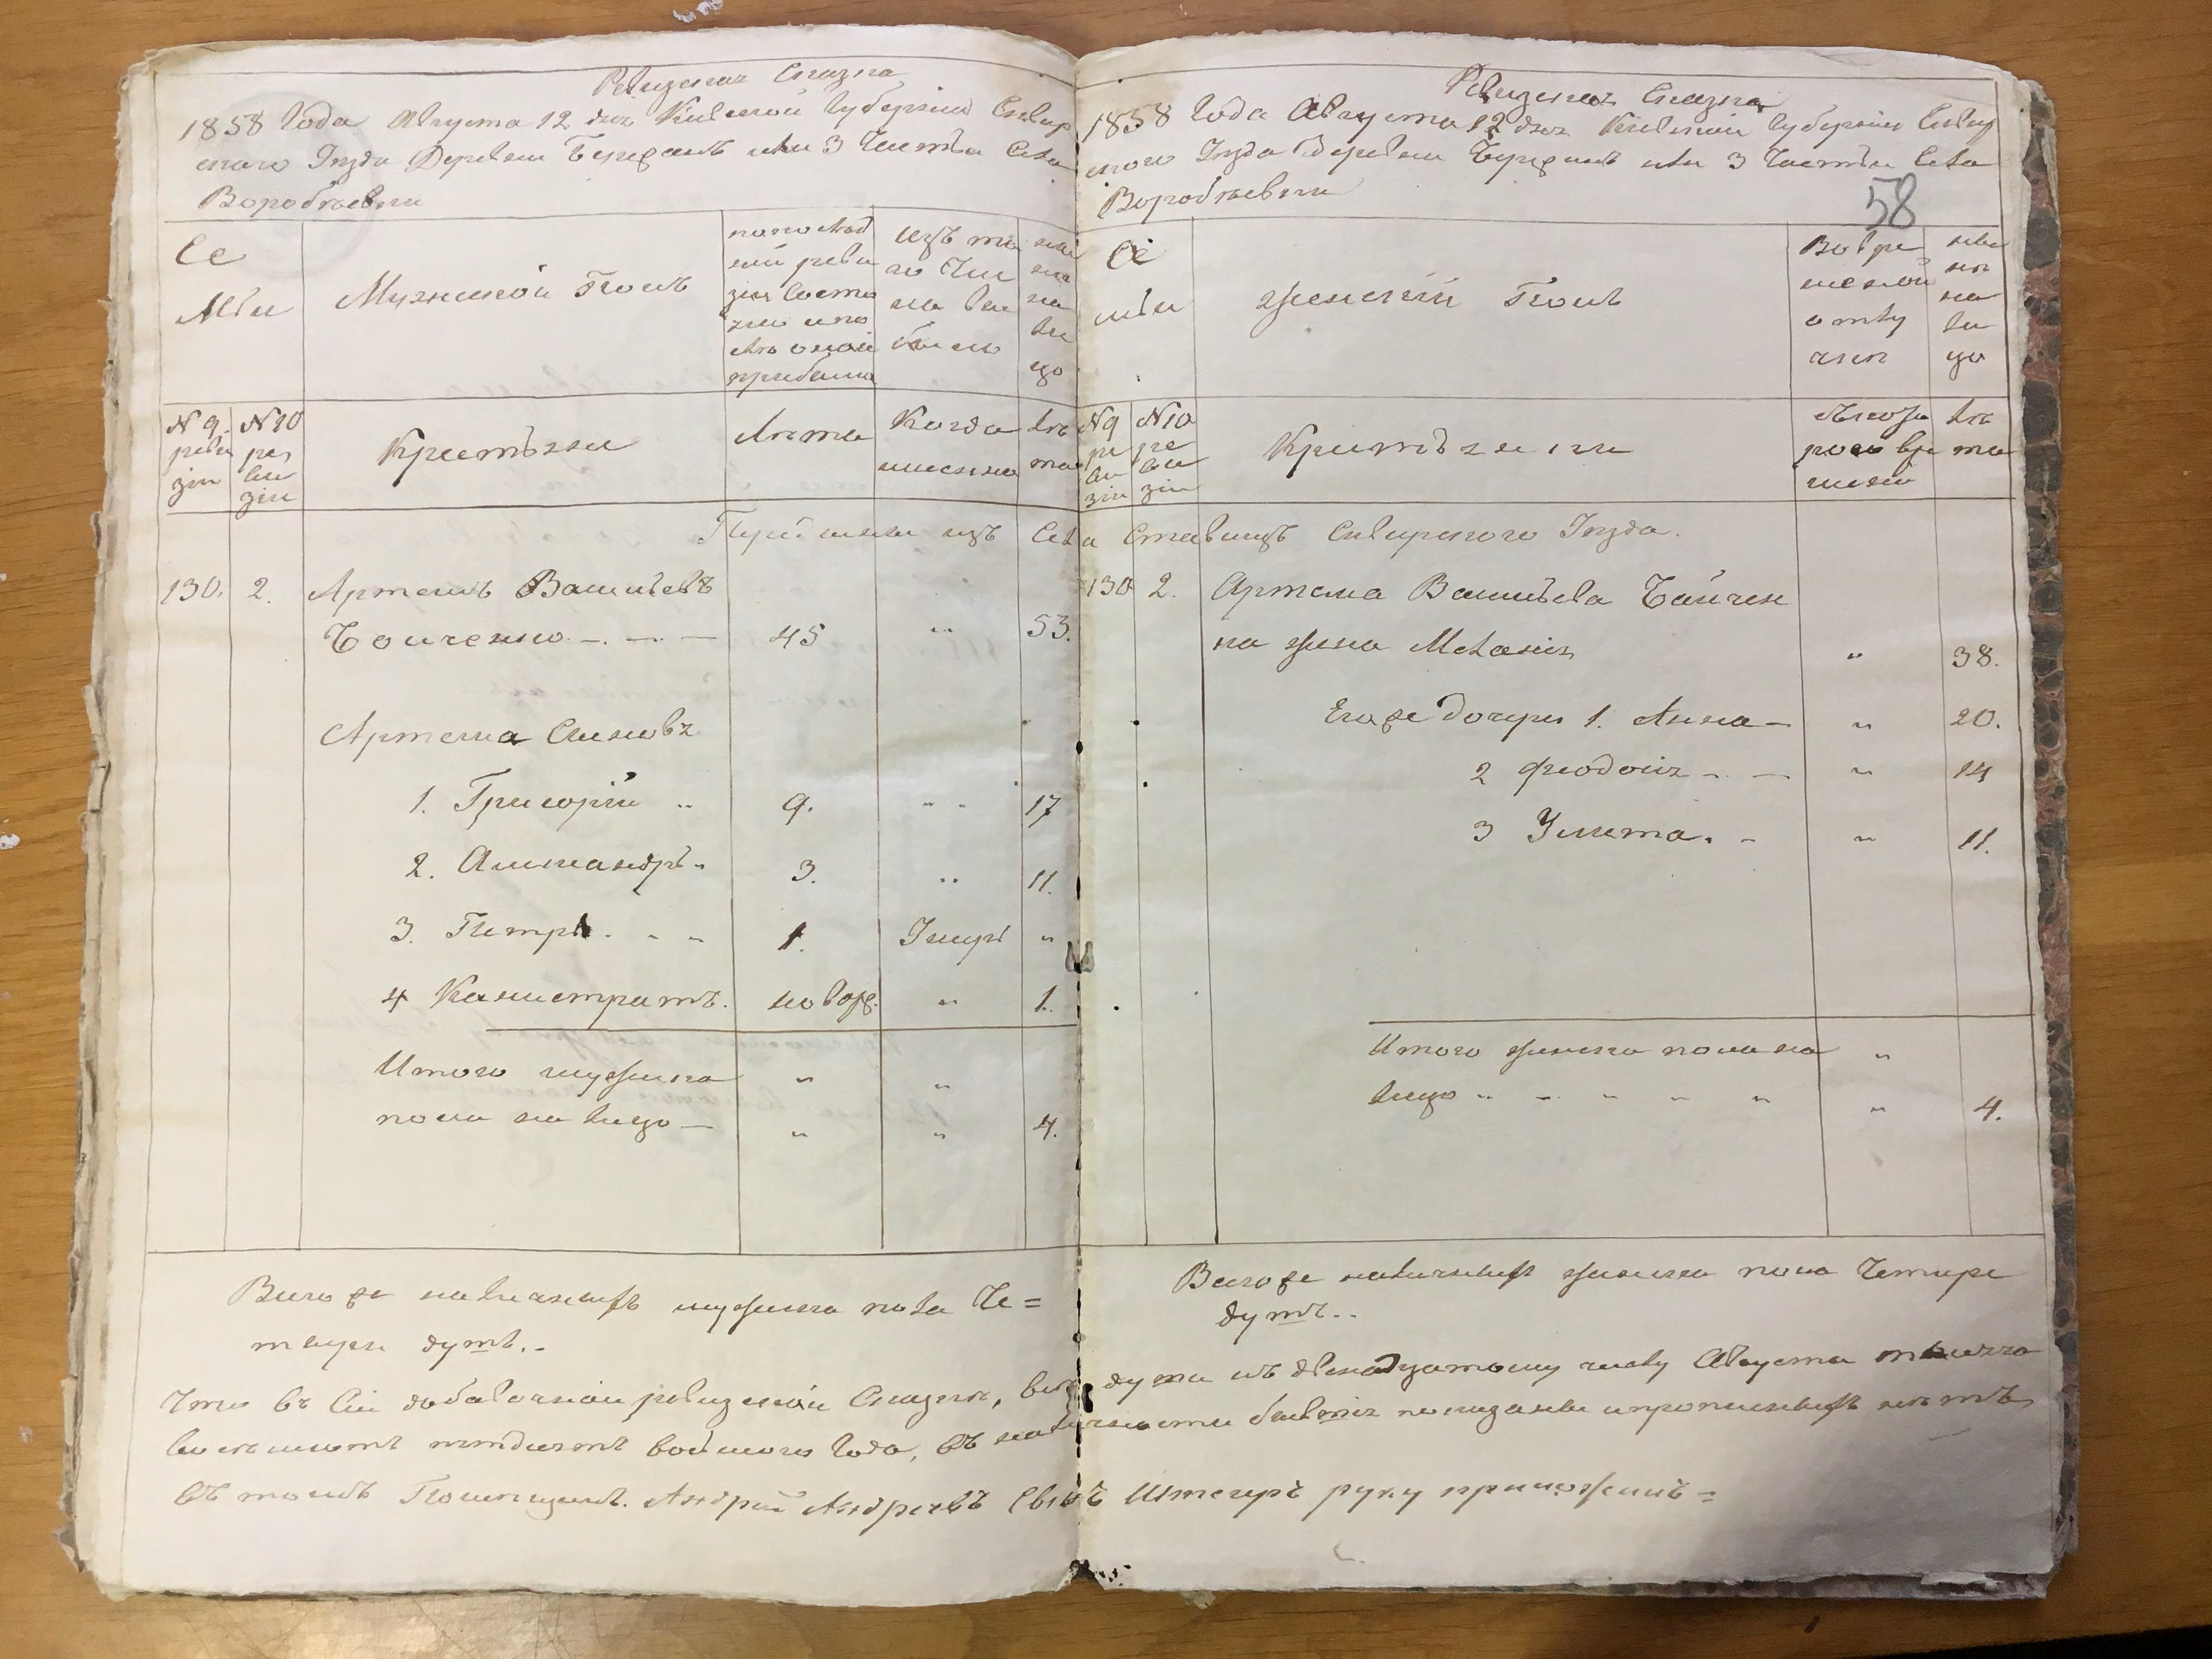 Ревизская Сказка
1858 Года Августа 12 дня Киевской Губернии Сквир
скаго Уезда Деревни Бережанъ или 3 Части Села
Воробіевки
Се
мьи
Мужеской Полъ
по послед
ней реви
зіи состо
яло и по
сле оной
прибыло
Изъ то
го Чи
сла вы
было
ны
не
на
ли
цо
№ 9.
реви
зіи
№ 10
ре
ви
зіи
Крестьяне
Лета
Когда
именно
Ле
та
Переведены изъ Села Ставищъ Сквирскаго Уезда.
130. 2. Артемъ Васильевъ
Бойченко 45 " 53.
Артема Сыновья
1. Григорій " 9. " " 17
2. Александръ " 3. " 11.
3. Петръ. " " 1. Умеръ "
4 Калистратъ. новорж. " 1.
Итого мужеска " "
пола на лицо — " " 4.
Всего же наличныхъ мужеска пола Че=
тыри душъ. -
Ревизская Сказка
1858 Года Августа 12 дня Киевской Губерніи Сквир
скаго Уезда Деревни Бережанъ или 3 Части Села
Воробіевки
58
Се
мьи
Женскій Полъ
Во вре
менной
отлу
чки
ны
не
на
ли
цо
№ 9
ре
ви
зіи
№ 10
ре
ви
зіи
Крестьянки
Ле
та
130 2. Артема Васильева Бойчен
ка жена Меланія " 38.
Его же дочери 1. Анна — " 20.
2 Феодосія - - " 14
3 Улита. - " 11.
Итого женска пола на "
лицо " " " " " " 4.
Всего же наличныхъ женска пола Четыре
душъ. .
Что въ сей добавочной ревизской Сказки, все души къ двенадцатому числу Августа тысяча
восемьсотъ пятдесятъ восьмого Года, въ наличности бывшія показаны и прописныхъ нетъ
въ томъ Помещикъ. Андрей Андреевъ Сынъ руку приложилъ =